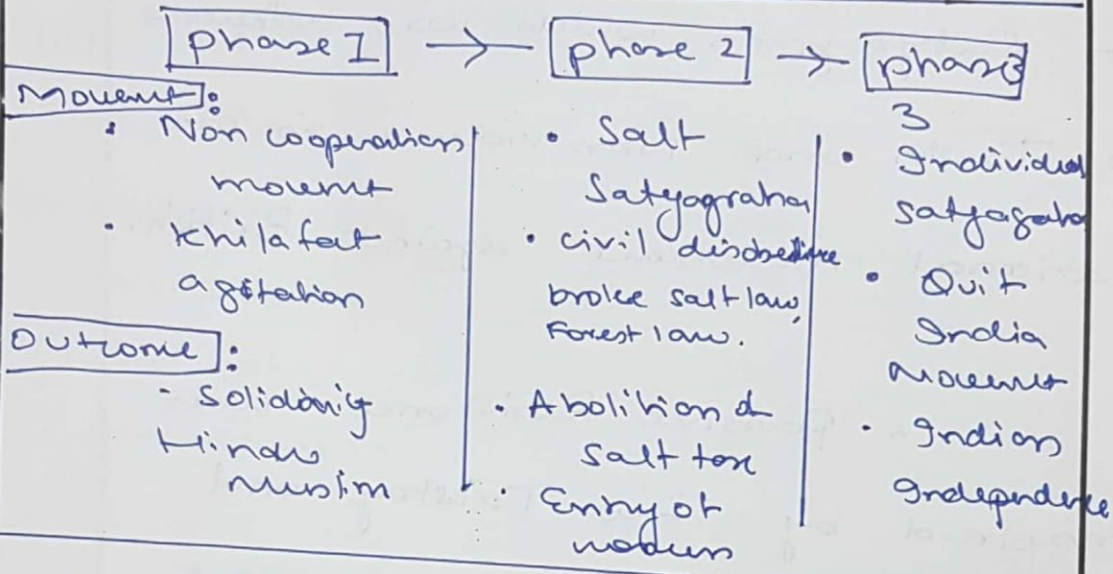 phase 1 → phase 2 → phase 3
Movement:
• Non cooperation
movement
• Khilafat
agitation
Outcome:
- Solidarity
Hindu
Muslim
• Salt
Satyagraha
• civil disobedience
broke salt law,
Forest law.
• Abolition of
salt tax
• Entry of
3
• Individual
satyagraha
• Quit
India
Movement
• Indian
Independence